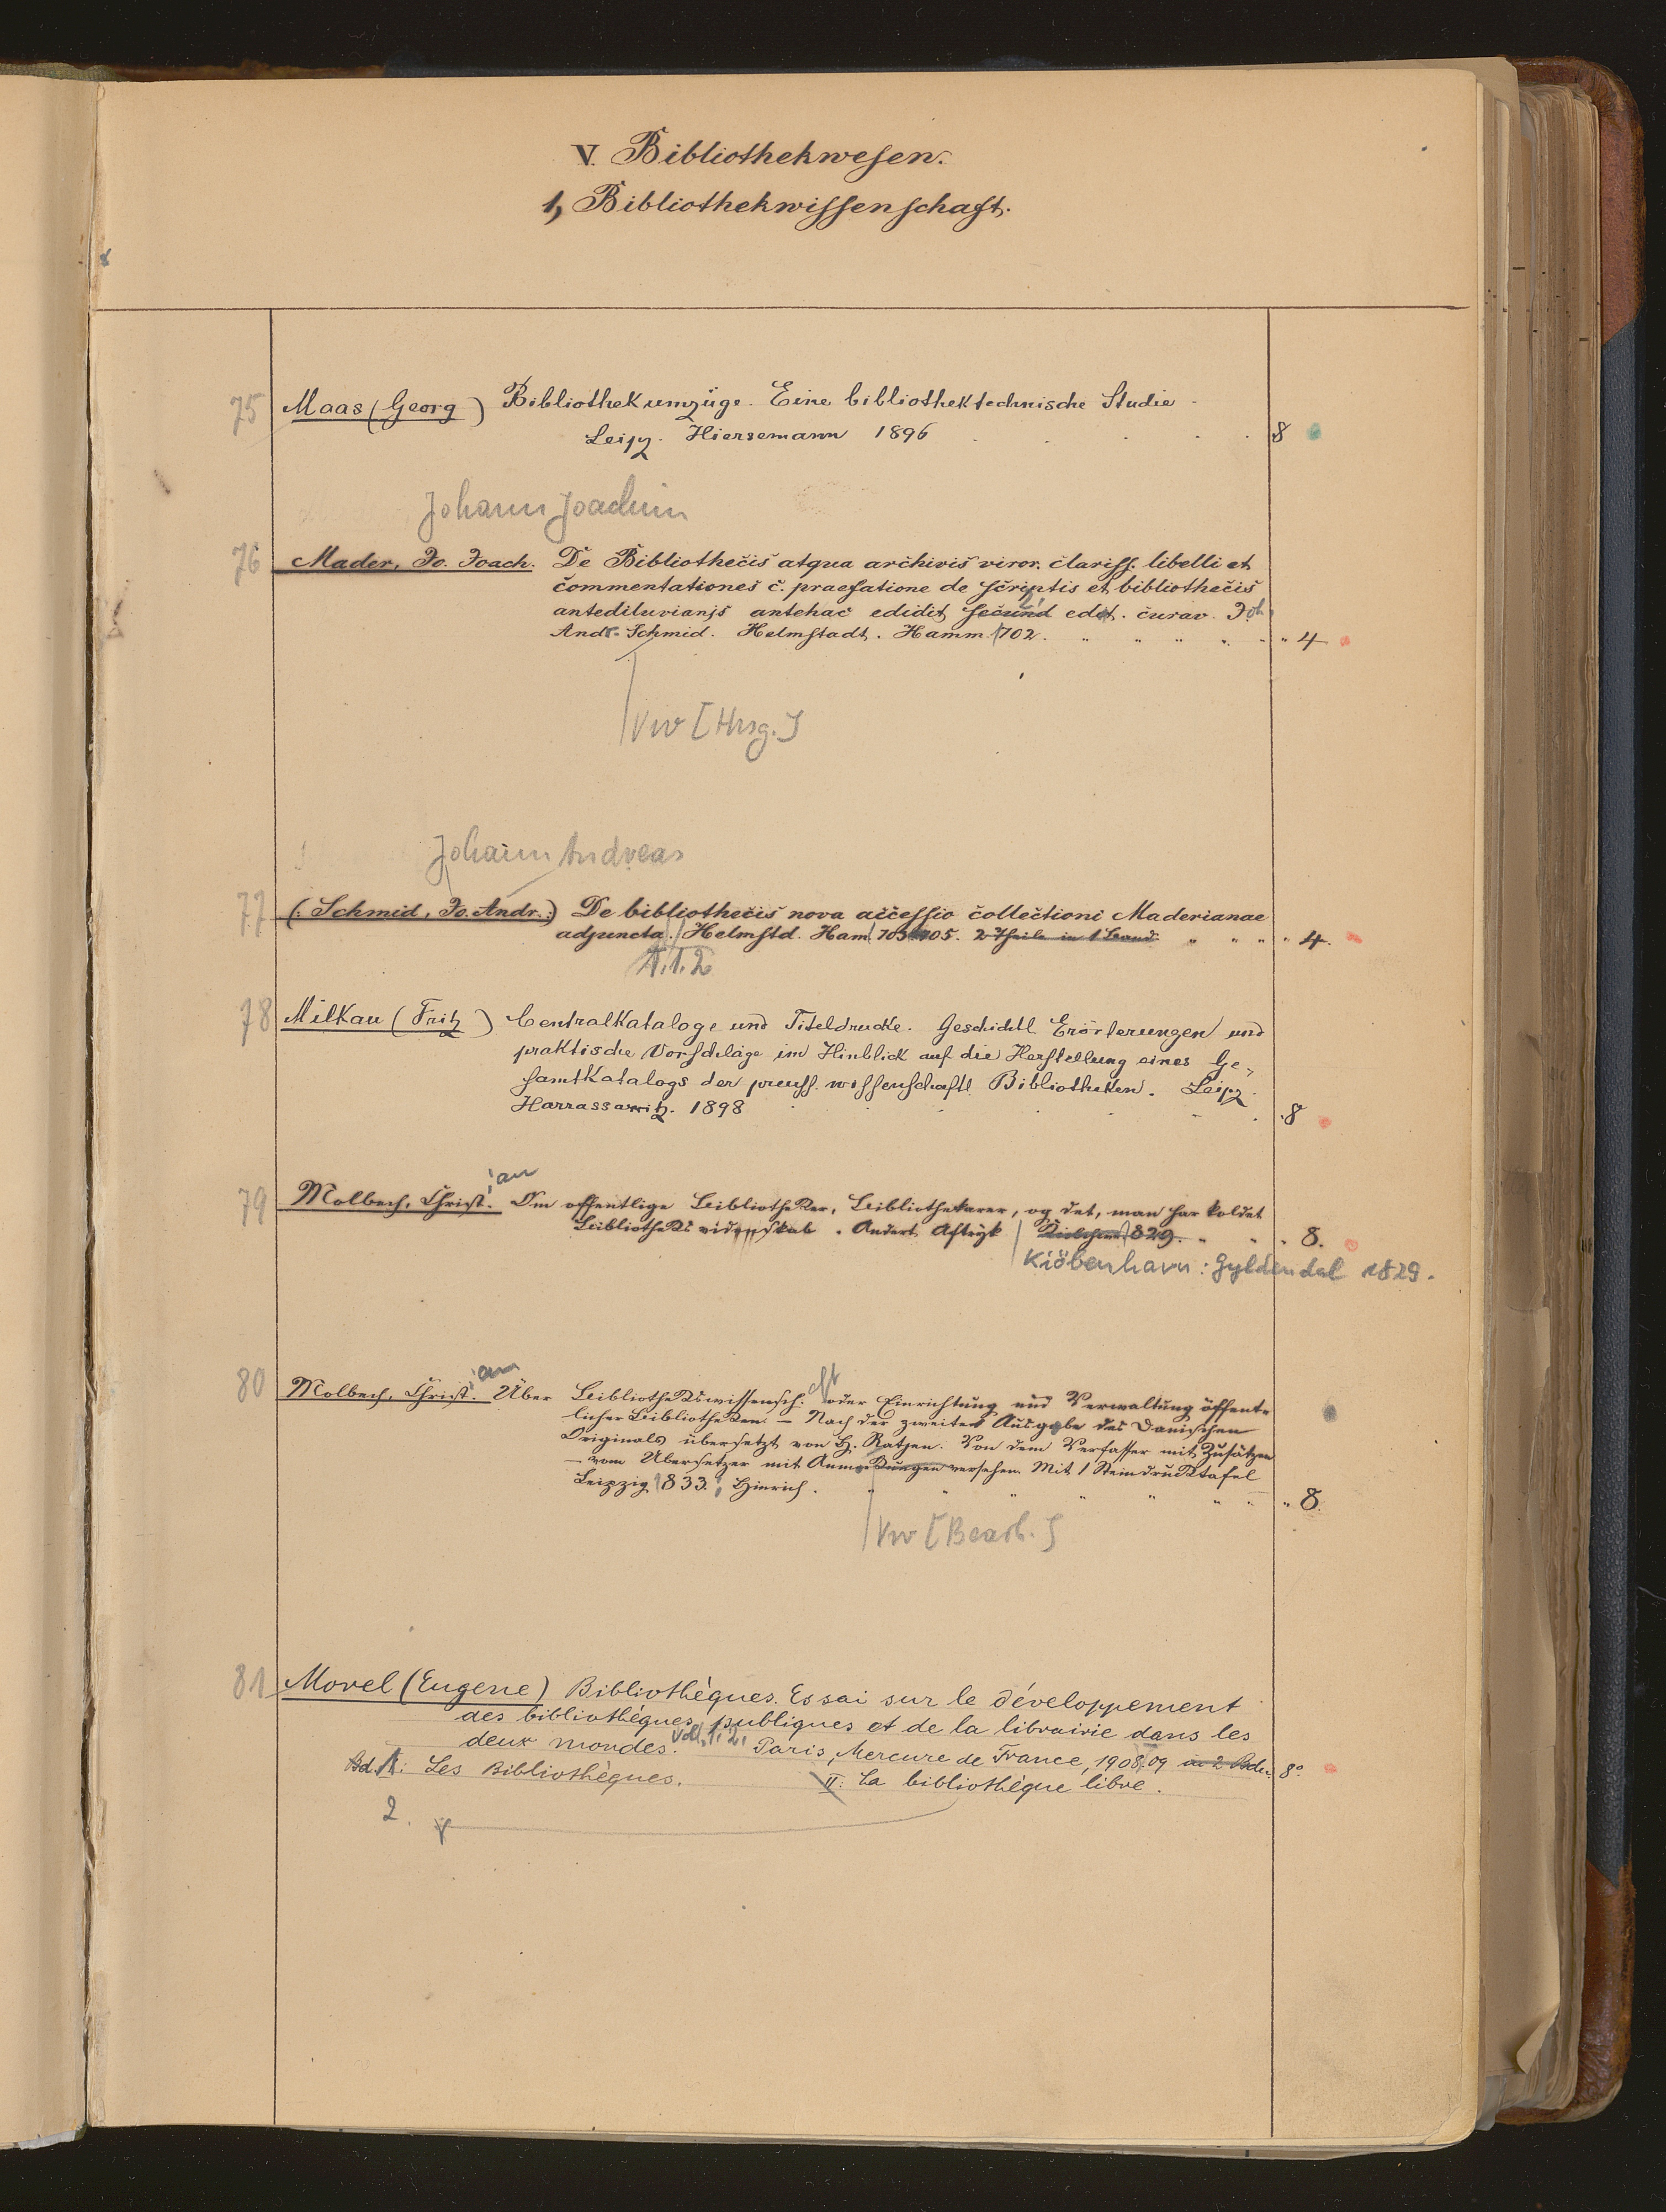 V. Bibliothekwesen.
1, Bibliothekwissenschaft.
75 Maas (Georg) Bibliothekumzüge. Eine bibliothektechnische Studie
Leipz. Hiersemann 1896 8
Johann Joachim
76 Mader, Jo. Joach. De Bibliothecis atqua archivis viror. clariss. libelli et
commentationes c. praefatione de scriptis et bibliothecis
antediluvianis antehac edidit, secund edit. curav. Joh
Andr. Schmid. Helmstadt. Hamm. 1702. " " " " " " 4
Vw [Hrsg.]
Johann Andreas
77 (: Schmid, Jo. Andr. :) De bibliothecis nova accessio collectioni Maderianae
adjuncta. / Helmstd. Ham. 703 705. 2 Theile in 1 Band. " " " " 4.
T. 1. 2
78 Milkau (Fritz) Centralkataloge und Titeldrucke. Geschichtl. Erörterungen und
praktische Vorschläge im Hinblick auf die Herstellung eines Ge-
samtkatalogs der preuss. wissenschaftl. Bibliotheken. Leipz.
Harrassowitz. 1898 8
ian
79 Molbech, Christ. Om offentlige Bibliotheker, Bibliothekarer, og det, man har koldet
Bibliotheks videnskab. Andert Aftryk / 1829. " " " 8.
Kiöbenhavn: Gyldendal 1829.
ian cft
80 Molbech, Christ. Über Bibliothekswissensch. oder Einrichtung und Verwaltung öffent-
licher Bibliotheken. — Nach der zweiten Ausgabe des Danischen
Originals übersetzt von H. Ratjen. Von dem Verfasser mit Zusätzen
— vom Übersetzer mit Anmerkungen versehen. Mit 1 Steindrucktafel
Leipzig 1833, Hinrich. " " " " " " " 8.
Vw [Bearb.]
81 Morel (Eugene) Bibliothèques. Essai sur le développement
des bibliothèques publiques et de la librairie dans les
deux mondes. Vol. 1. 2. Paris, Mercure de France, 1908.09 in 2 Bdn. 8°
Bd. 1: Les Bibliothèques. II: La bibliothèque libre.
2.